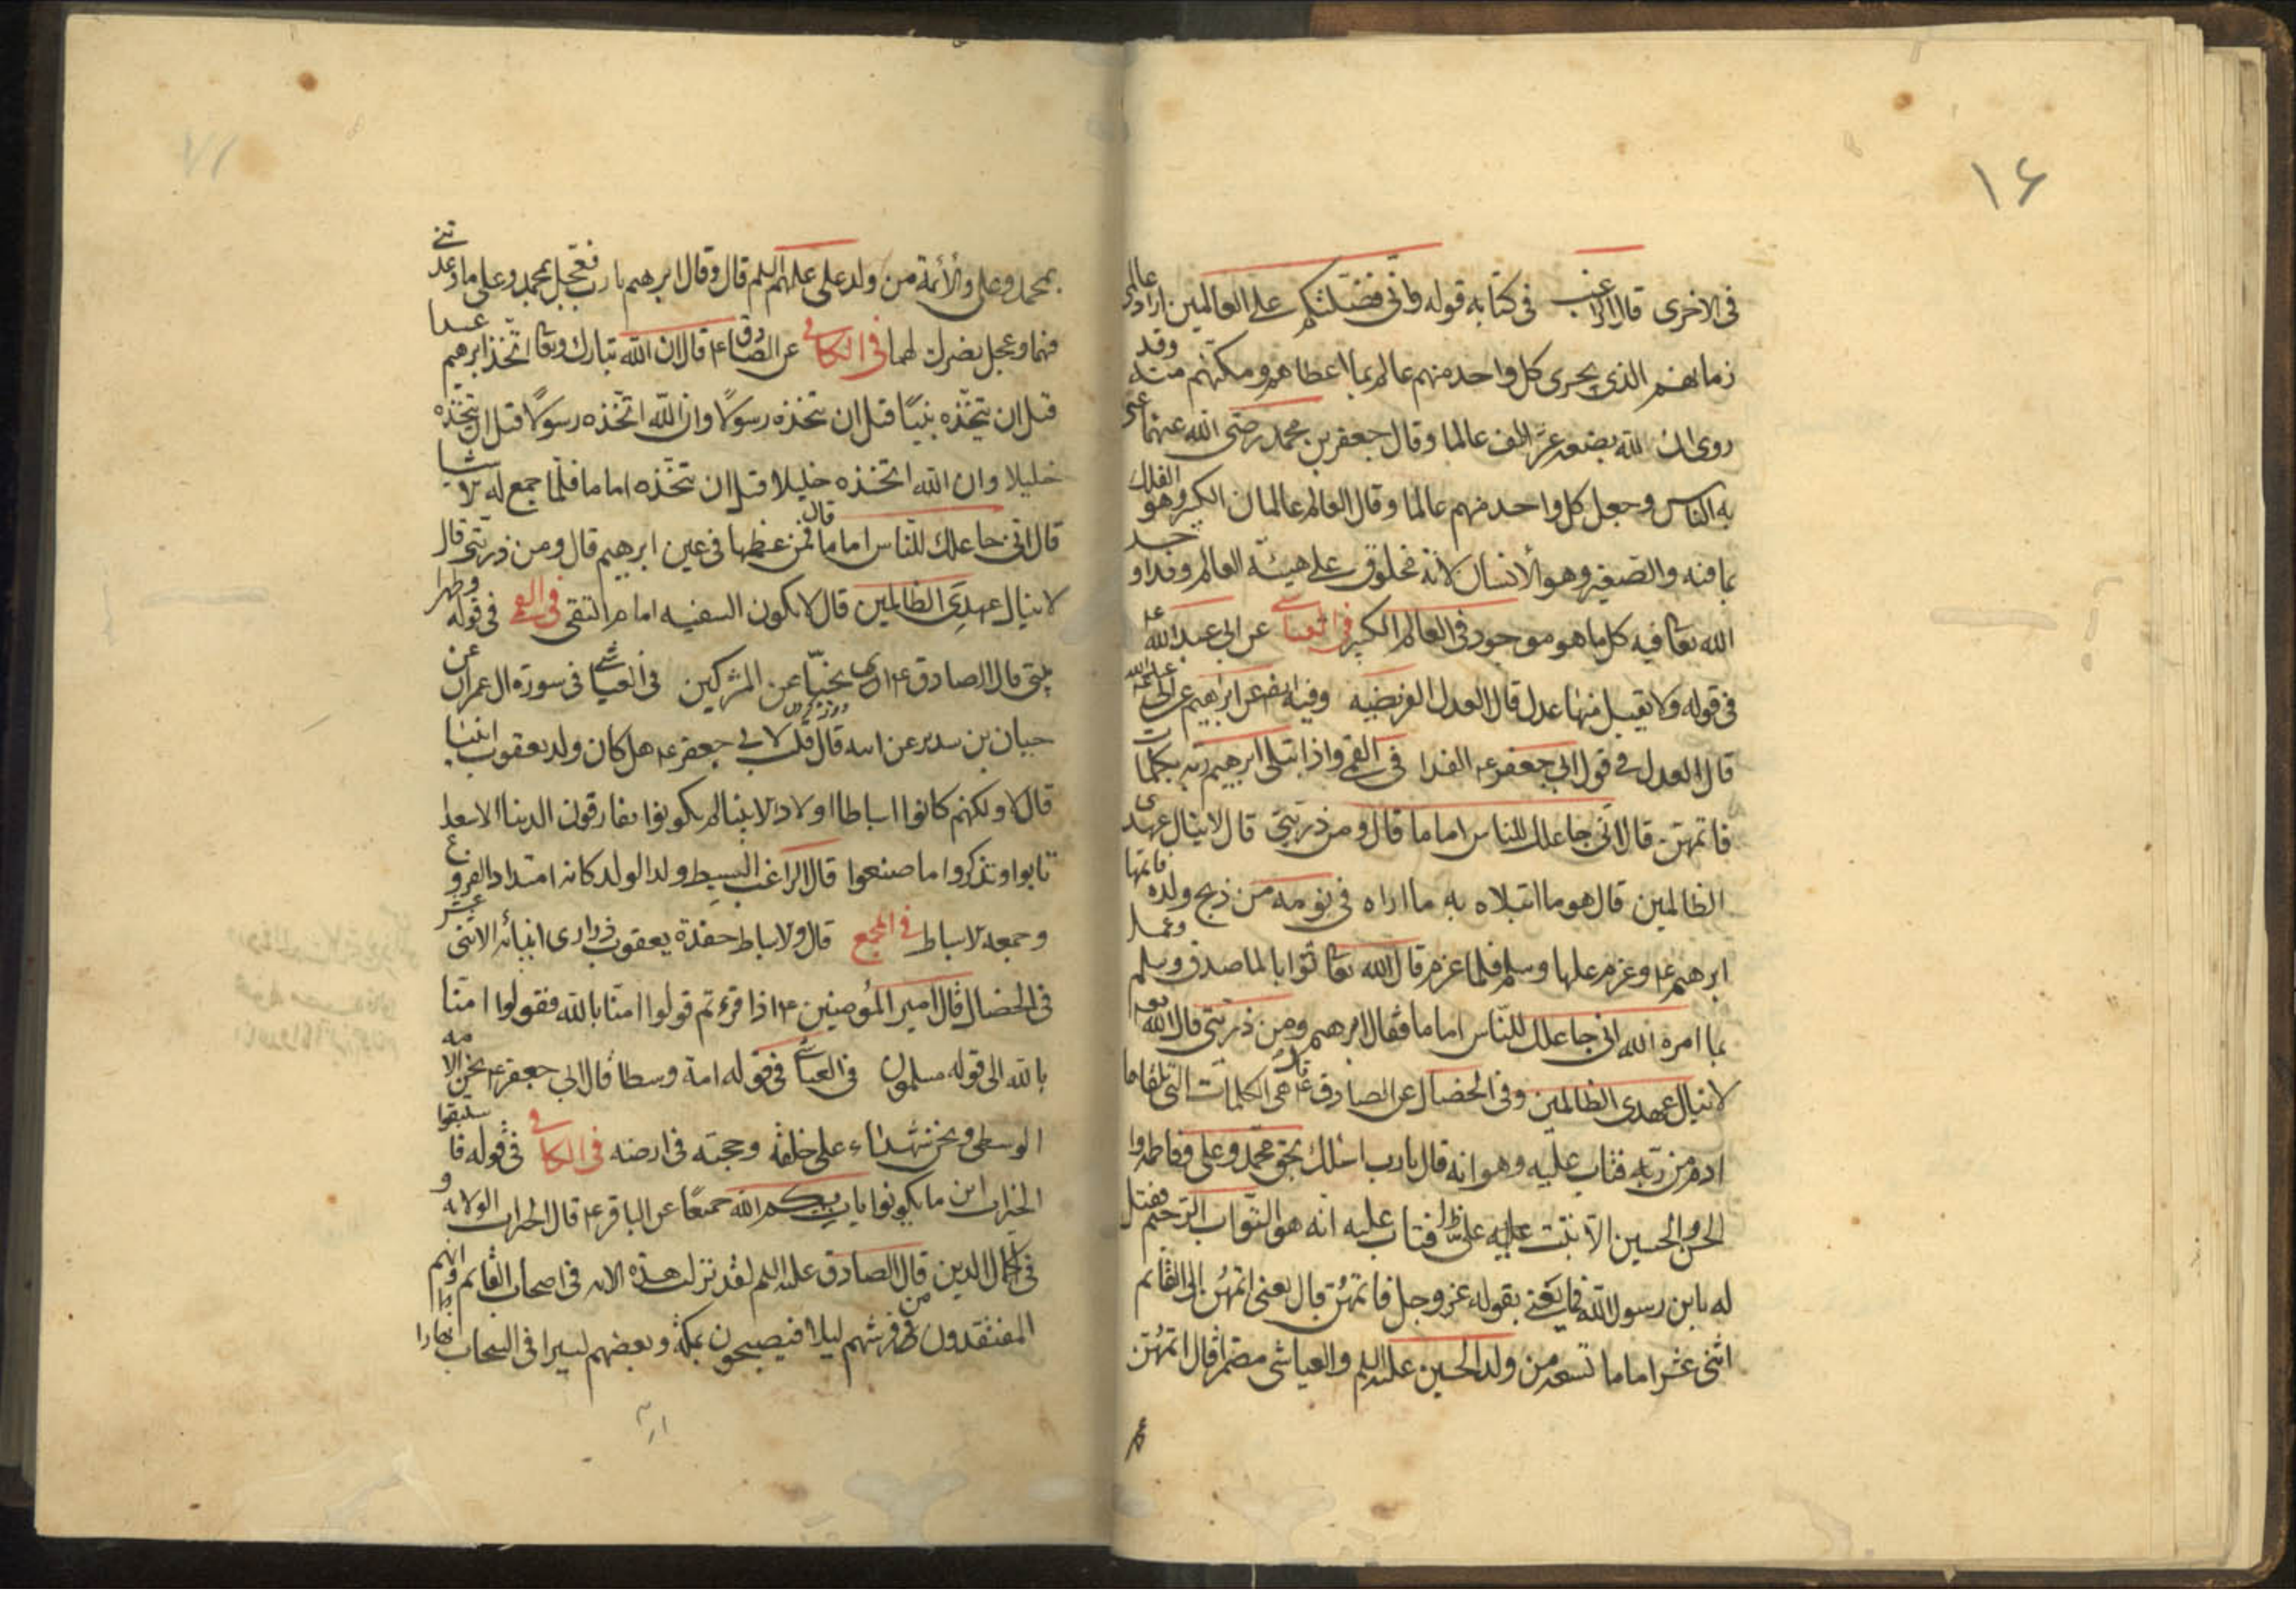 ١٦
فى الاخرى قال الراغب فى كتابه قوله وانى فضلتكم على العالمين اراد عالمى
زمانهم الذى يجرى كل واحد منهم عالم بما اعطاهم ومكنهم منه وقد
روى ان لله بضعة عشر الف عالما وقال جعفر بن محمد رضى الله عنهما عنى
به الناس وجعل كل واحد منهم عالما وقال العالم عالمان الكبير وهو الفلك
بما فيه والصغير وهو الأنسان لانه مخلوق على هيئة العالم وقد اوجد
الله تعا فيه كل ما هو موجود فى العالم الكبير فى العياشى عن ابى عبد الله ع
فى قوله ولا يقبل منها عدل قال العدل الفريضه وفيه ايضا عن ابراهيم عن ابى عبد الله
قال العدل فى قول ابى جعفر ع الفدا فى القمى واذ ابتلى ابرهيم ربه بكلمات
فاتمهن قال انى جاعلك للناس اماما قال ومن ذريتى قال لا ينال عهدى
الظالمين قال هو ما ابتلاه به ما اراه فى نومه من ذبح ولده فاتمها
ابرهيم ع وعزم عليها وسلم فلما عزم قال الله تعا ثوابا لما صدق وسلم وعمل
بما امره الله انى جاعلك للناس اماما فقال ابرهيم ومن ذريتى قال الله تع
لا ينال عهدى الظالمين وفى الخصال عن الصادق ع قال هى الكلمات التى تلقاها
ادم من ربه فتاب عليه وهو انه قال يا رب اسئلك بحق محمد وعلى وفاطمه و
الحسن والحسين الا تبت على فتاب عليه انه هو التواب الرحيم فقيل
له يا بن رسول الله فما يعنى بقوله عز وجل فاتمهن قال يعنى اتمهن الى القائم
اثنى عشر اماما تسعه من ولد الحسين عليه السلم والعياشى مضمرا قال اتمهن
بمحمد وعلى والأئمة من ولد على عليهم السلم قال وقال ابرهيم يا رب فعجل بمحمد وعلى ما وعدتنى
فيهما وعجل بنصرك لهما فى الكافى عن الصادق ع قال ان الله تبارك وتعا اتخذ ابرهيم عبدا
قبل ان يتخذه نبيا قبل ان يتخذه رسولا وان الله اتخذه رسولا قبل ان يتخذه
خليلا وان الله اتخذه خليلا قبل ان يتخذه اماما فلما جمع له الاشيا
قال انى جاعلك للناس اماما قال فمن عظمها فى عين ابرهيم قال ومن ذريتى قال
لا ينال عهدى الظالمين قال لا يكون السفيه امام التقى فى القمى فى قوله وطهرا
بيتى قال الصادق ع اى نحيا عن المشركين فى العياشى فى سورة ال عمران عن
حبان بن سدير عن ابيه قال قلت لابى جعفر ع هل كان ولد يعقوب انبيا
قال لا ولكنهم كانوا اسباطا اولاد الانبيا لم يكونوا يفارقون الدنيا الا سعدا
تابوا وتذكروا ما صنعوا قال الراغب السبط ولد الولد كانه امتداد الفروع
وجمعه الاسباط فى المجمع قال والاسباط حفدة يعقوب ذرارى ابنائه الاثنى عشر
فى الخصال قال امير المؤمنين ع اذا قرءتم قولوا امنا بالله فقولوا امنا
بالله الى قوله مسلمون فى العياشى فى قوله امة وسطا قال ابى جعفر ع نحن الامه
الوسطى ونحن شهداء على خلقه وحجته فى ارضه فى الكافى فى قوله فاستبقوا
الخيرات اين ما يكونوا يات بكم الله جميعا عن الباقر ع قال الخيرات الولايه و
فى اكمال الدين قال الصادق عليه السلم لقد نزلت هذه الايه فى اصحاب القائم وانهم
المفتقدون من فرشهم ليلا فيصبحون بمكة وبعضهم يسير فى السحاب نهارا